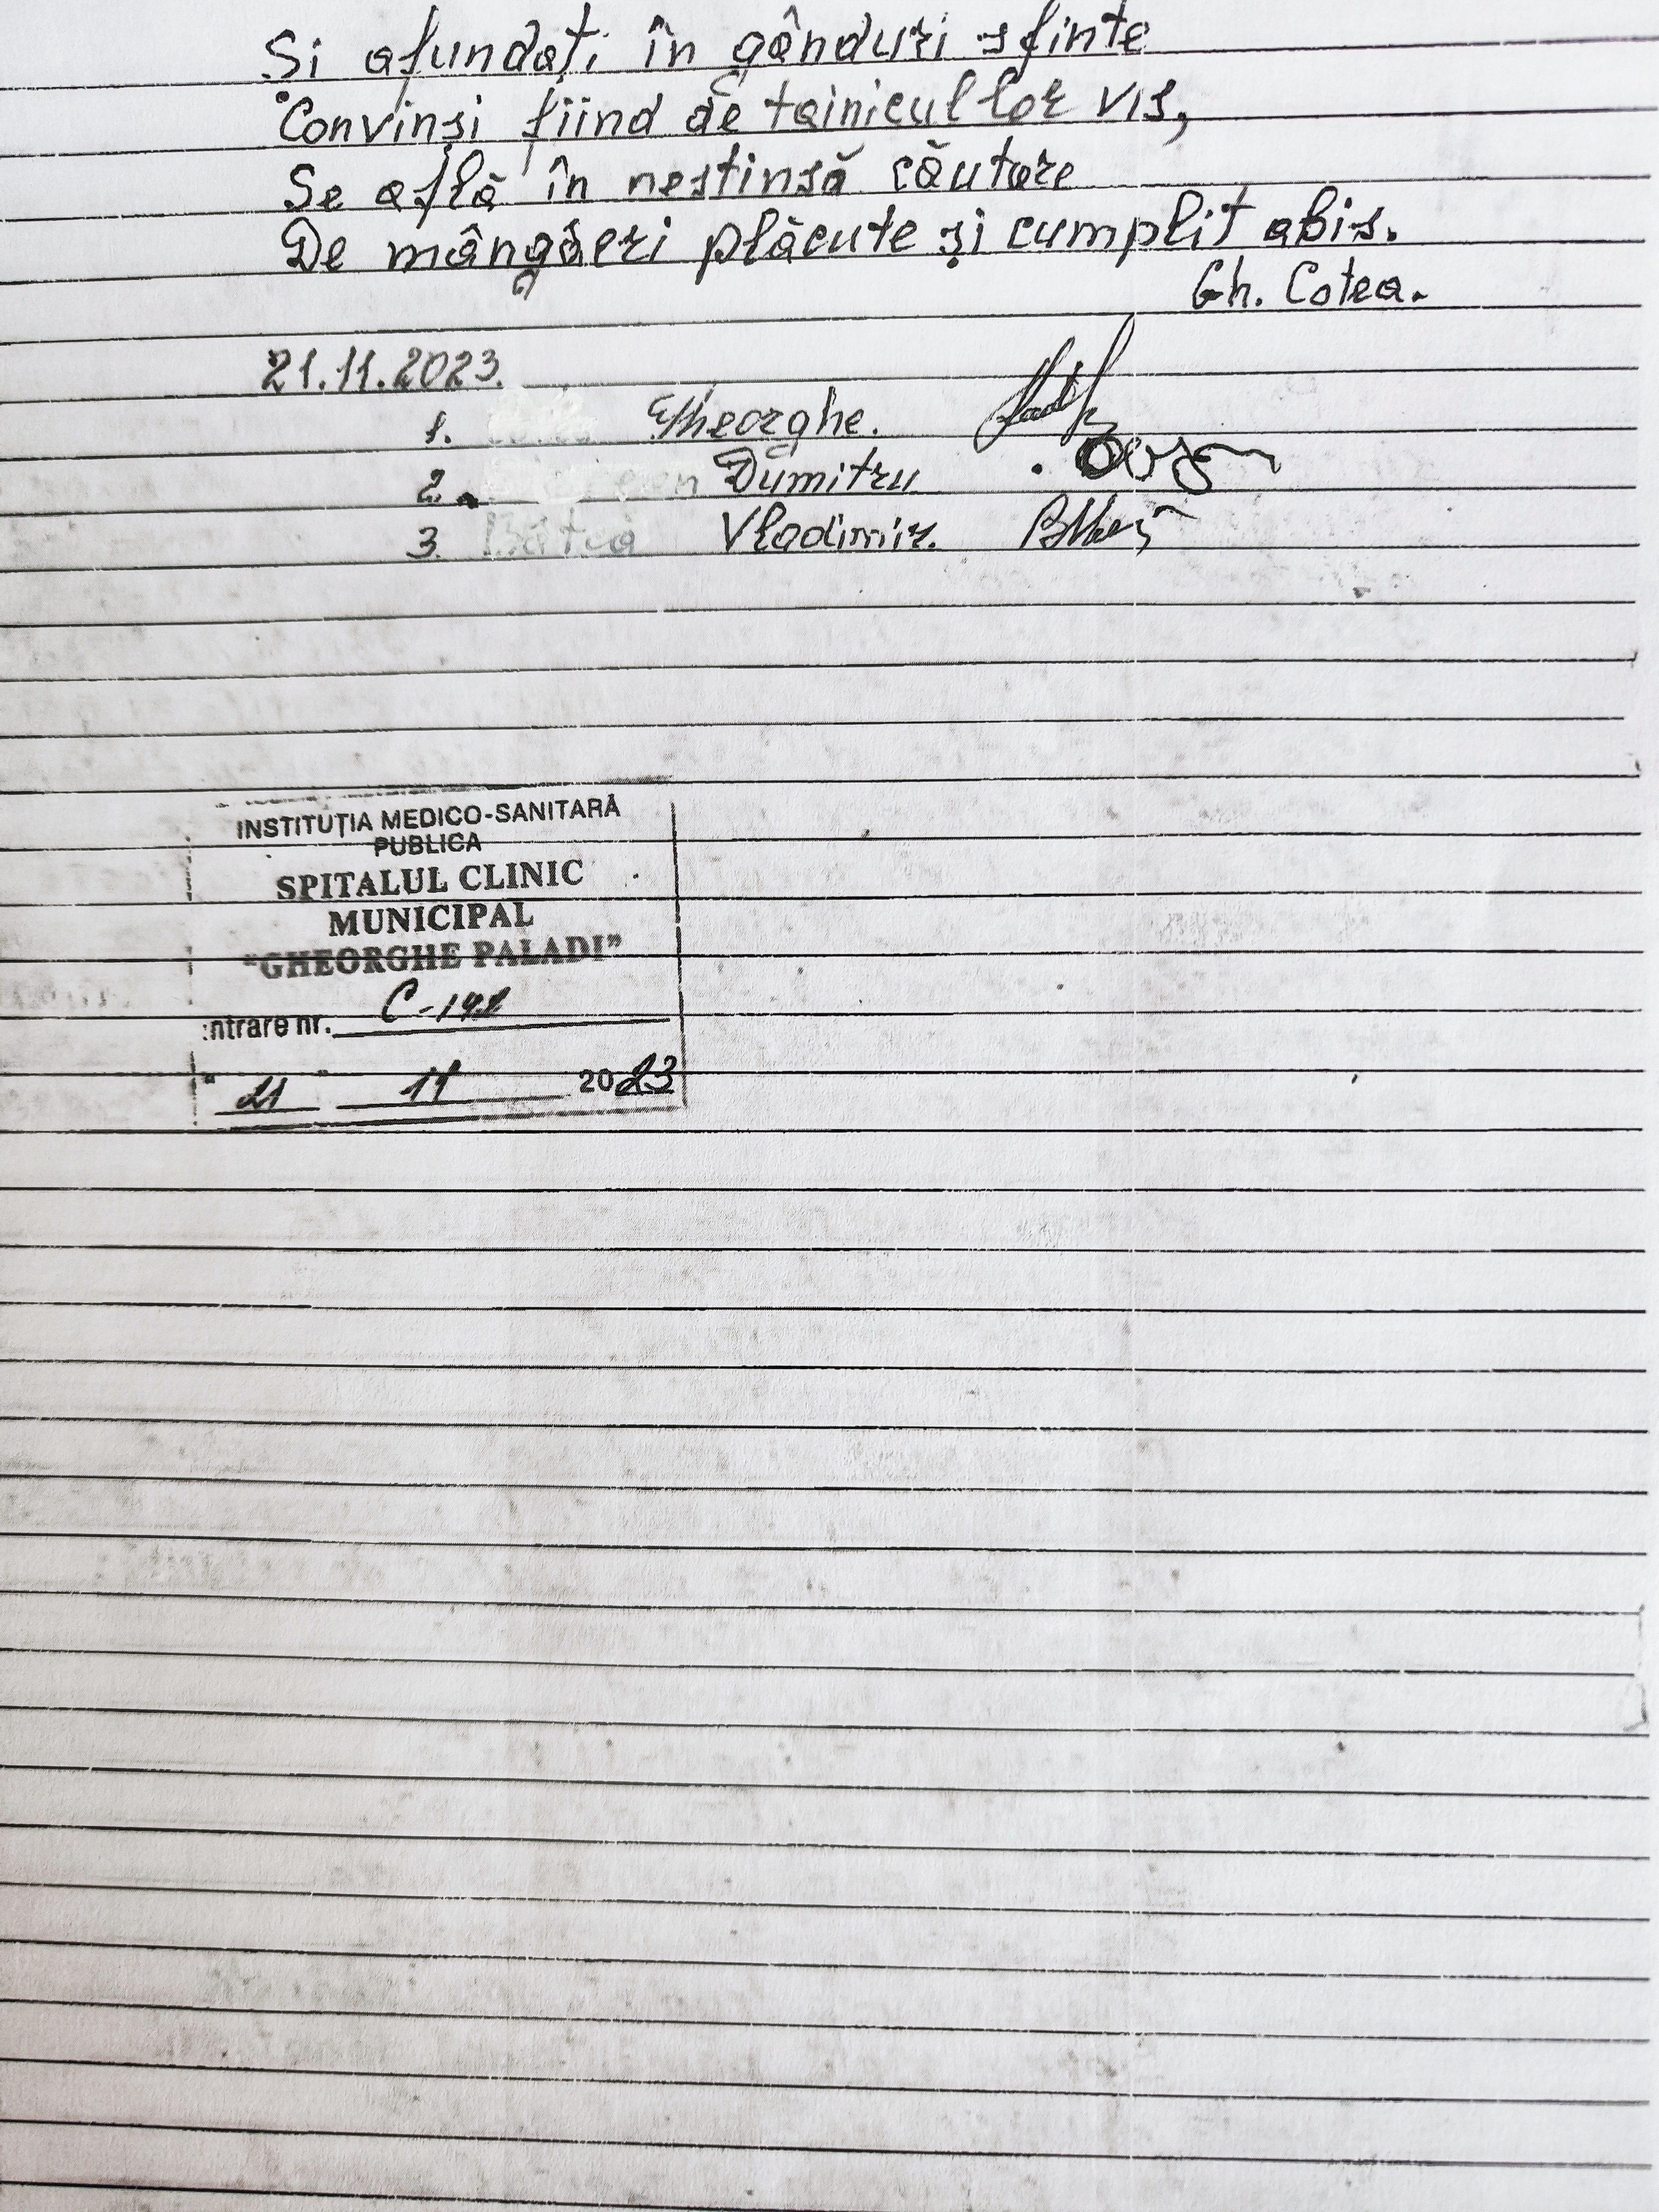 Și afundați în gânduri sfinte
Convinși fiind de tainicul lor vis,
Se află în nestinsă căutare
De mângâeri plăcute și cumplit abis.
Gh. Cotea.
21.11.2023.
1. Gheorghe.
2. Dumitru
3. Vladimir.
INSTITUȚIA MEDICO-SANITARĂ
PUBLICA
SPITALUL CLINIC
MUNICIPAL
"GHEORGHE PALADI"
ntrare nr.
" 21 " 11 2023